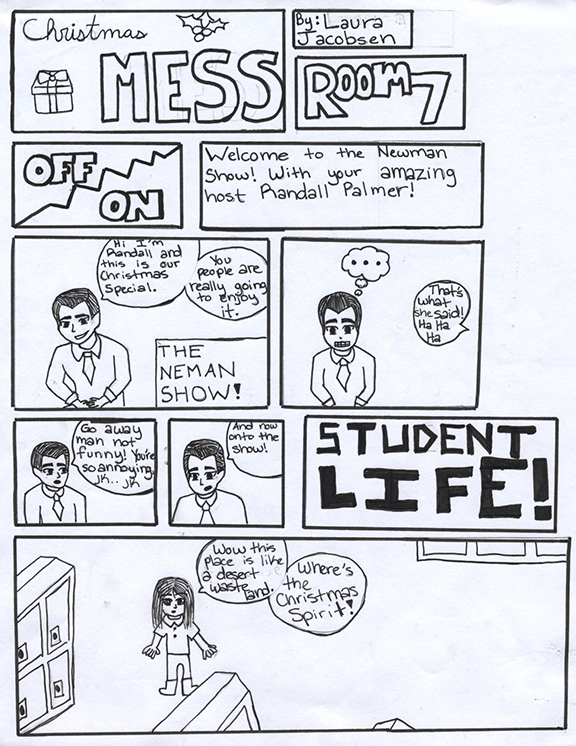 Christmas
MESS
By: Laura
Jacobsen
ROOM 7
OFF
ON
Welcome to the Newman
Show! With your amazing
host Randall Palmer!
Hi I'm
Randall and
this is our
Christmas
Special.
You
people are
really going
to enjoy
it.
THE
NEMAN
SHOW!
...
That's
what
she said!
Ha Ha
Ha
Go away
man not
funny! You're
so annoying.
JK... JK
And now
onto the
show!
STUDENT
LIFE!
Wow this
place is like
a desert
waste
land.
Where's
the
Christmas
Spirit!